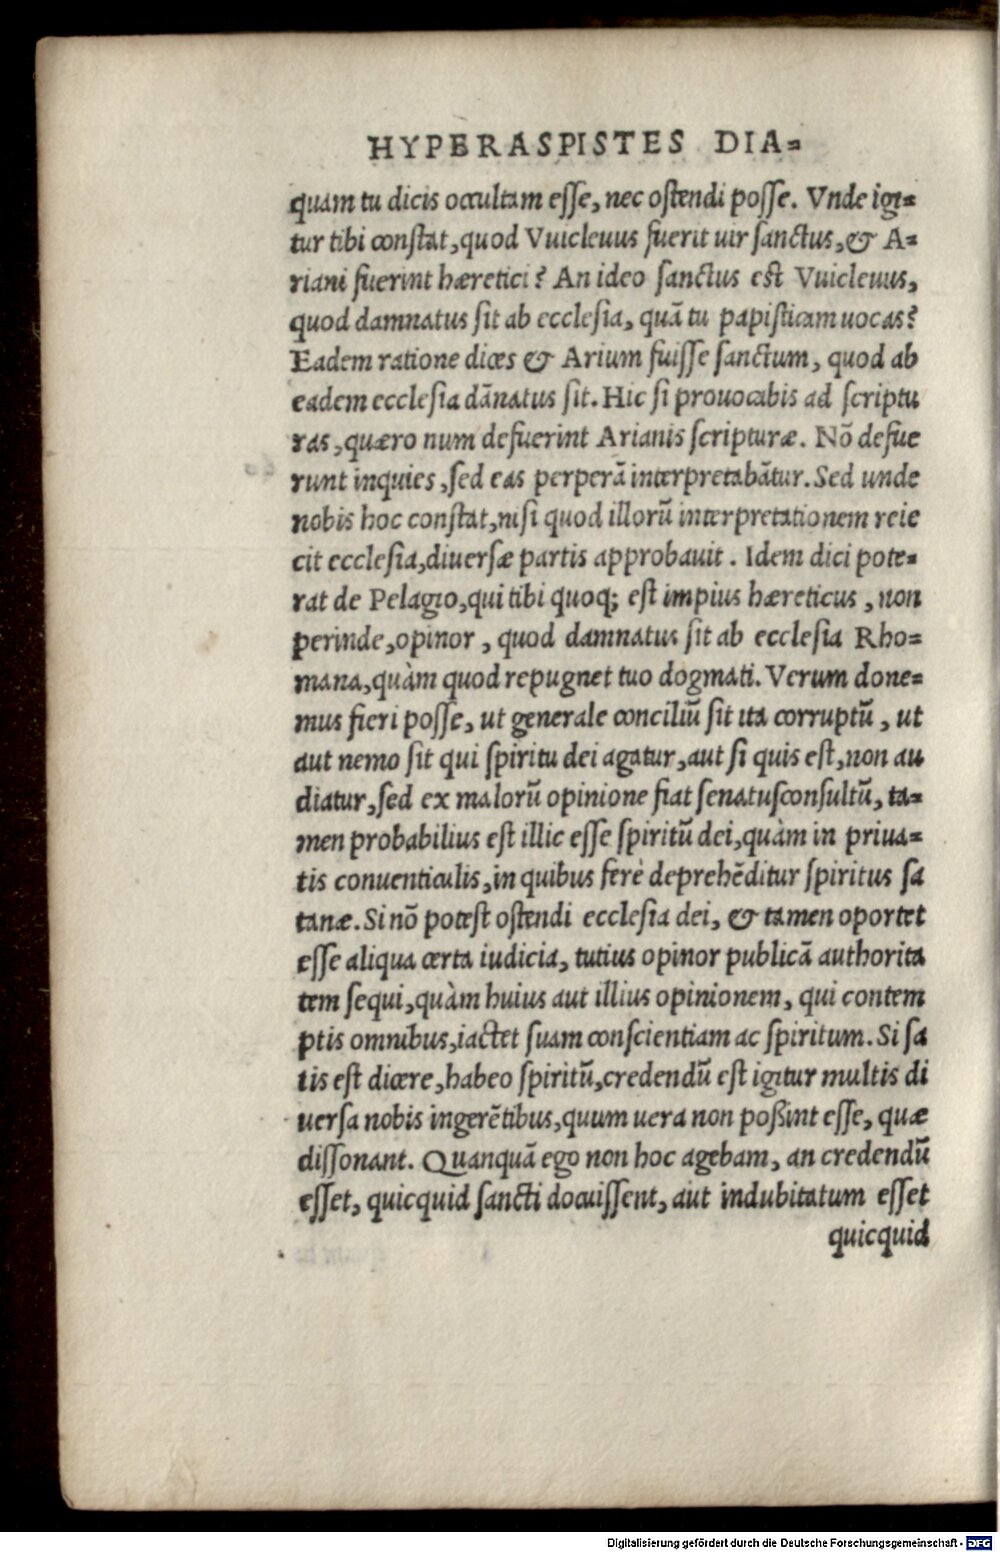 HYPERASPISTES DIA=
quam tu dicis occultam esse, nec ostendi posse. Vnde igi=
tur tibi constat, quod Vuicleuus fuerit uir sanctus, & A=
riani fuerint hæretici? An ideo sanctus est Vuicleuus,
quod damnatus sit ab ecclesia, quā tu papisticam uocas?
Eadem ratione dices & Arium fuisse sanctum, quod ab
eadem ecclesia dānatus sit. Hic si prouocabis ad scriptu
ras, quæro num defuerint Arianis scripturæ. Nō defue
runt inquies, sed eas perperā interpretabātur. Sed unde
nobis hoc constat, nisi quod illorū interpretationem reie
cit ecclesia, diuersæ partis approbauit. Idem dici pote=
rat de Pelagio, qui tibi quoq; est impius hæreticus, non
perinde, opinor, quod damnatus sit ab ecclesia Rho=
mana, quàm quod repugnet tuo dogmati. Verum done=
mus fieri posse, ut generale conciliū sit ita corruptū, ut
aut nemo sit qui spiritu dei agatur, aut si quis est, non au
diatur, sed ex malorū opinione fiat senatusconsultū, ta=
men probabilius est illic esse spiritū dei, quàm in priua=
tis conuenticulis, in quibus ferè deprehēditur spiritus sa
tanæ. Si nō potest ostendi ecclesia dei, & tamen oportet
esse aliqua certa iudicia, tutius opinor publicā authorita
tem sequi, quàm huius aut illius opinionem, qui contem
ptis omnibus, iactet suam conscientiam ac spiritum. Si sa
tis est dicere, habeo spiritū, credendū est igitur multis di
uersa nobis ingerētibus, quum uera non poßint esse, quæ
dissonant. Quanquā ego non hoc agebam, an credendū
esset, quicquid sancti docuissent, aut indubitatum esset
quicquid
Digitalisierung gefördert durch die Deutsche Forschungsgemeinschaft - DFG